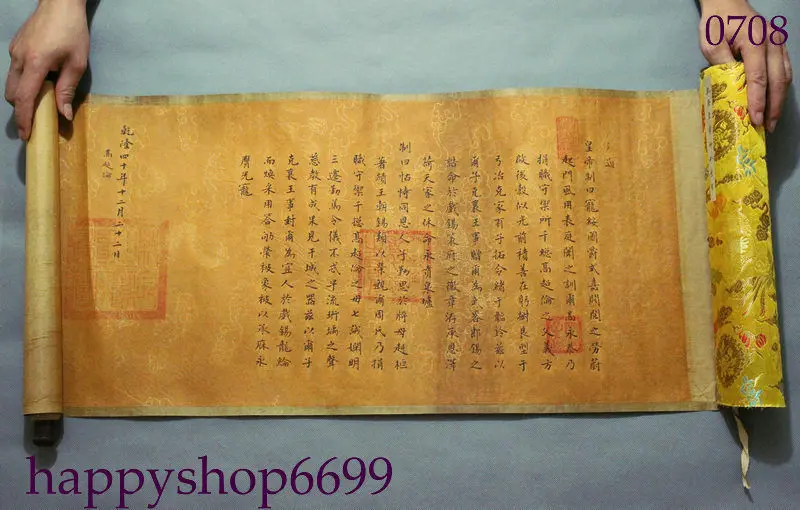 0708
皇帝制曰寵綏國爵式嘉閥閱之勞蔚
起門風用表庭闈之訓爾高永泰乃
捐職守禦所千總高起倫之父義方
啟後轂似光前積善在躬樹良型于
弓冶克家有子拓令緒于韜鈐茲以
爾子克襄王事贈爾為武略郎錫之
誥命於戲錫策府之徽章洊承恩澤
荷天家之休命永賁泉壚
制曰怙恃同恩人子勤思於將母赳桓
著績王朝錫類以榮親爾周氏乃捐
職守禦千總高起倫之母七誡嫻明
三遷勤篤令儀不忒早流珩瑀之聲
慈教有成果見干城之器茲以爾子
克襄王事封爾為宜人於戲錫龍綸
而煥采用答劬勞被象服以承庥永
膺光寵
乾隆四十年十二月二十二日
高起倫
happyshop6699